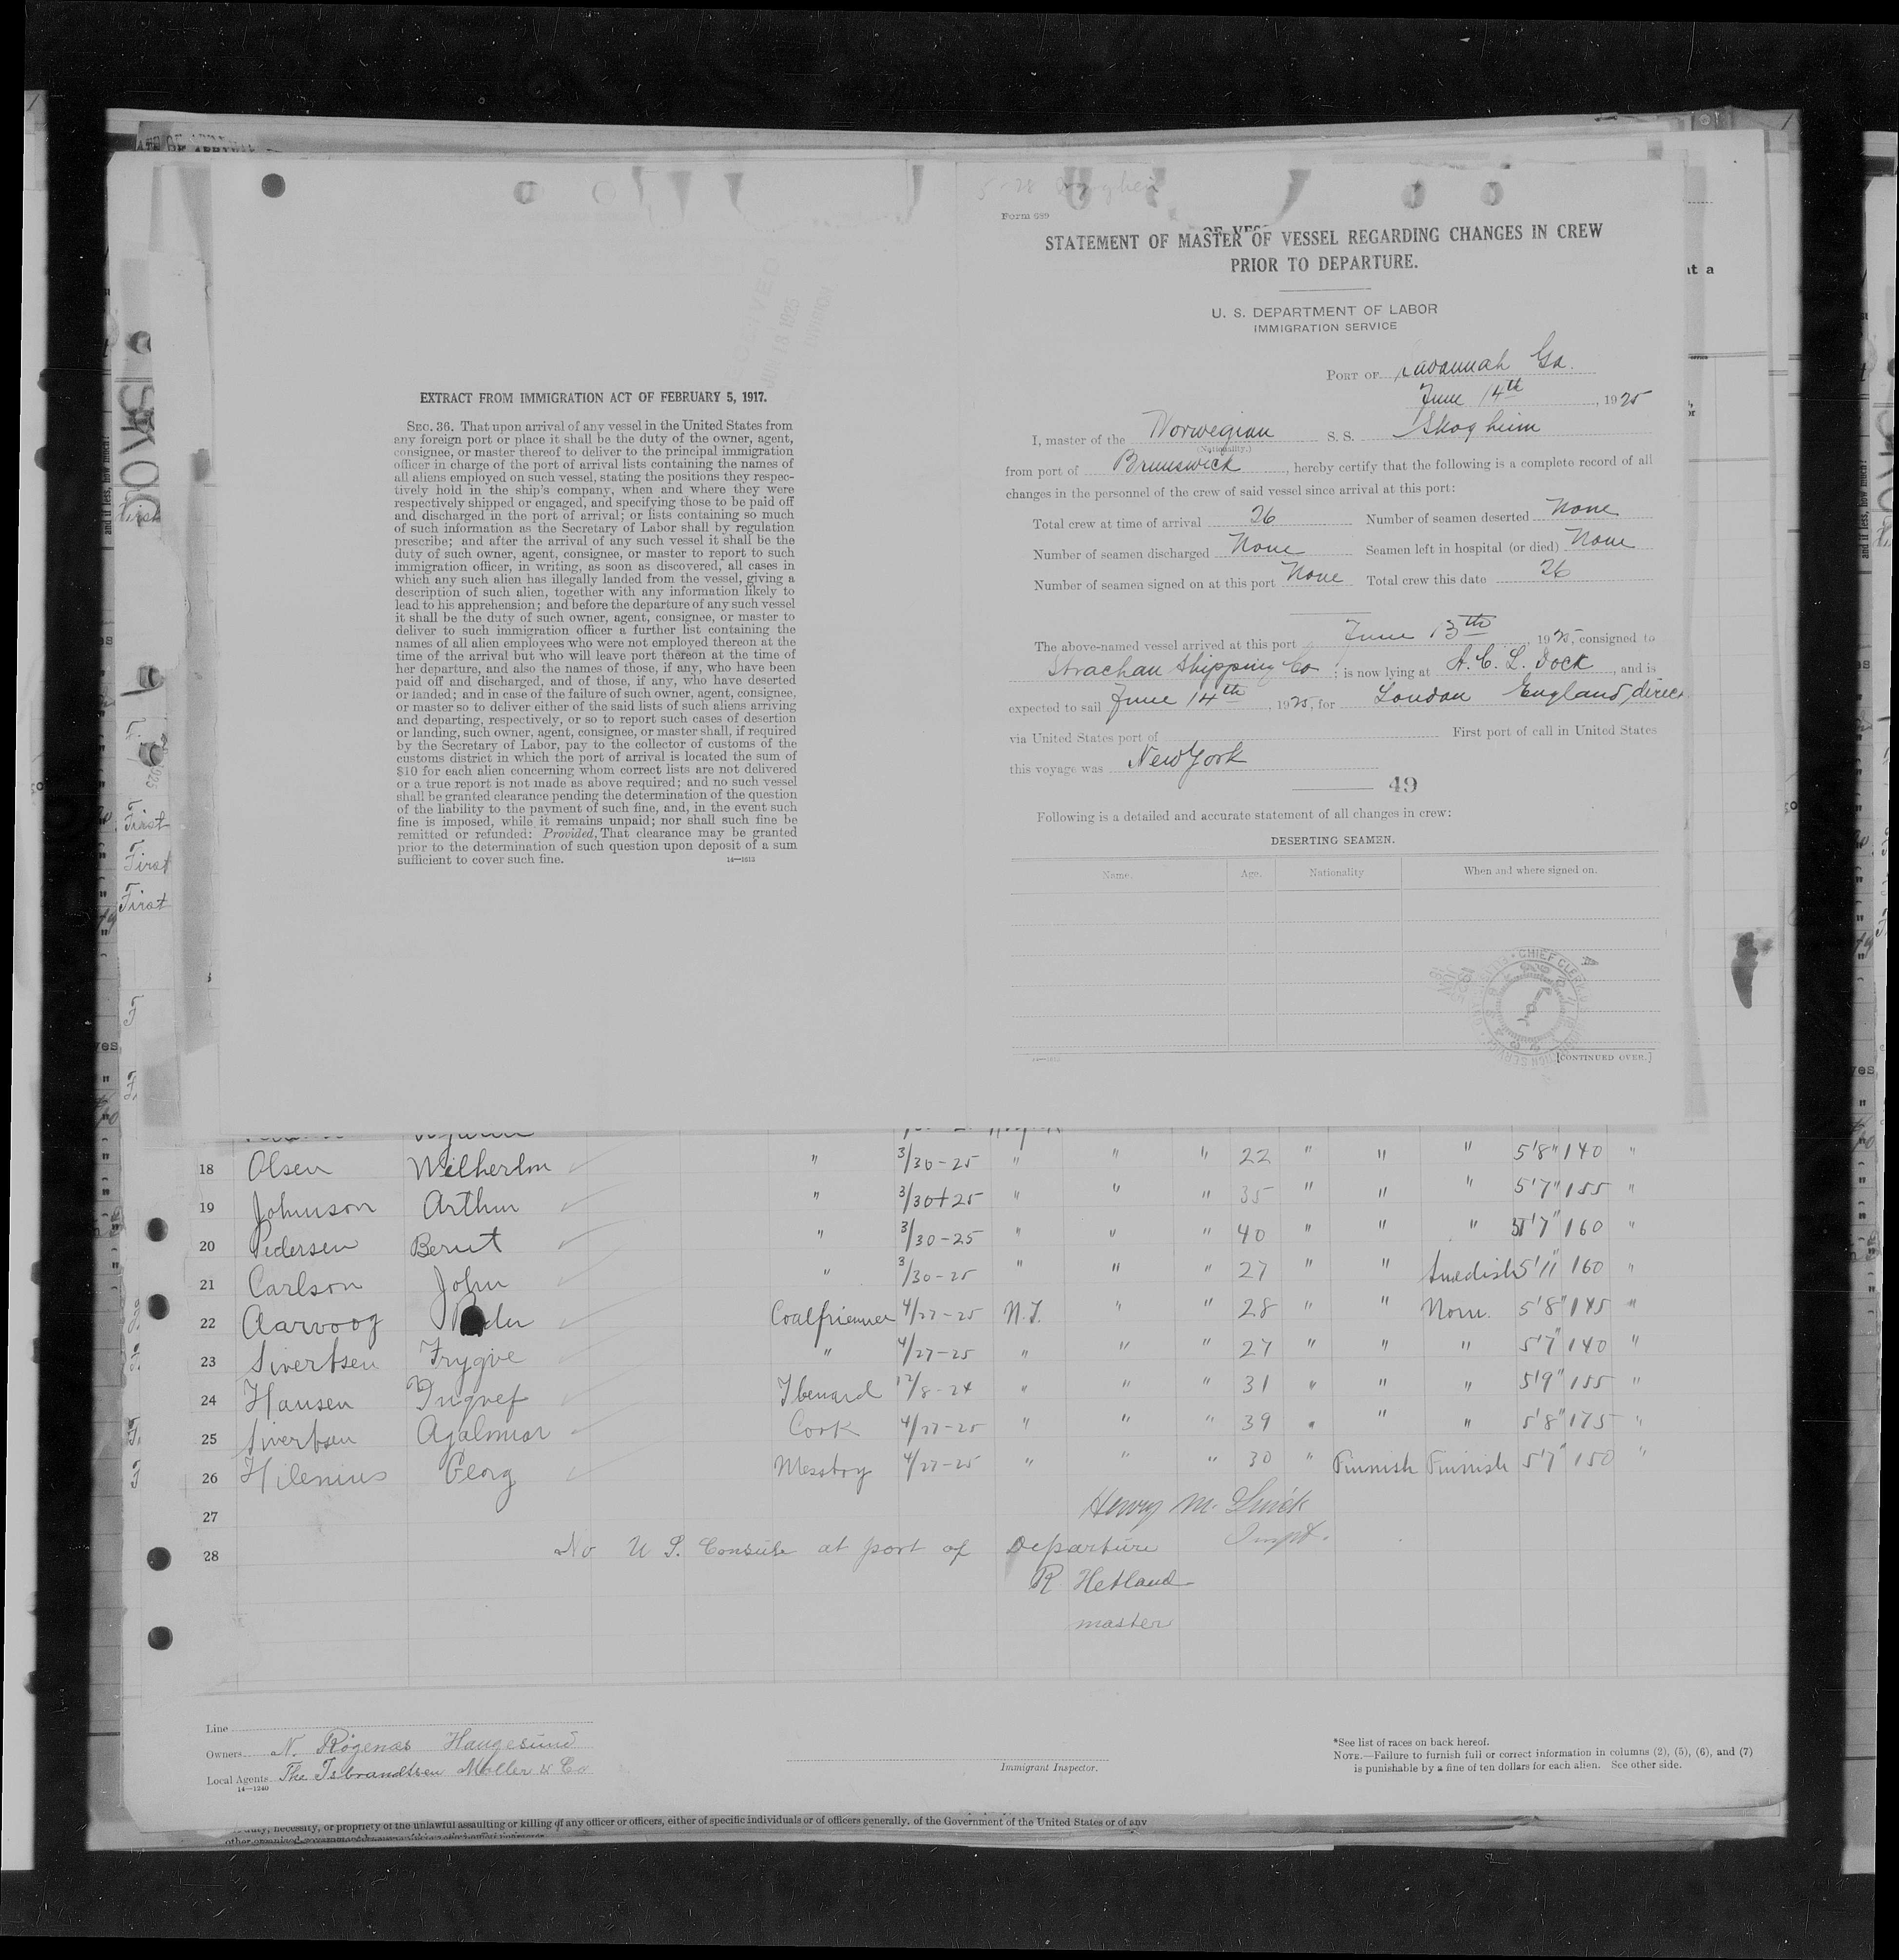 EXTRACT FROM IMMIGRATION ACT OF FEBRUARY 5, 1917.
SEC. 36. That upon arrival of any vessel in the United States from
any foreign port or place it shall be the duty of the owner, agent,
consignee, or master thereof to deliver to the principal immigration
officer in charge of the port of arrival lists containing the names of
all aliens employed on such vessel, stating the positions they respec-
tively hold in the ship's company, when and where they were
respectively shipped or engaged, and specifying those to be paid off
and discharged in the port of arrival; or lists containing so much
of such information as the Secretary of Labor shall by regulation
prescribe; and after the arrival of any such vessel it shall be the
duty of such owner, agent, consignee, or master to report to such
immigration officer, in writing, as soon as discovered, all cases in
which any such alien has illegally landed from the vessel, giving a
description of such alien, together with any information likely to
lead to his apprehension; and before the departure of any such vessel
it shall be the duty of such owner, agent, consignee, or master to
deliver to such immigration officer a further list containing the
names of all alien employees who were not employed thereon at the
time of the arrival but who will leave port thereon at the time of
her departure, and also the names of those, if any, who have been
paid off and discharged, and of those, if any, who have deserted
or landed; and in case of the failure of such owner, agent, consignee,
or master so to deliver either of the said lists of such aliens arriving
and departing, respectively, or so to report such cases of desertion
or landing, such owner, agent, consignee, or master shall, if required
by the Secretary of Labor, pay to the collector of customs of the
customs district in which the port of arrival is located the sum of
$10 for each alien concerning whom correct lists are not delivered
or a true report is not made as above required; and no such vessel
shall be granted clearance pending the determination of the question
of the liability to the payment of such fine, and, in the event such
fine is imposed, while it remains unpaid; nor shall such fine be
remitted or refunded: Provided, That clearance may be granted
prior to the determination of such question upon deposit of a sum
sufficient to cover such fine. 14—1613
Form 689
STATEMENT OF MASTER OF VESSEL REGARDING CHANGES IN CREW
PRIOR TO DEPARTURE.
U. S. DEPARTMENT OF LABOR
IMMIGRATION SERVICE
PORT OF Savannah Ga.
June 14th, 1925
I, master of the Norwegian S. S. Skogheim
(Nationality.)
from port of Brunswick, hereby certify that the following is a complete record of all
changes in the personnel of the crew of said vessel since arrival at this port:
Total crew at time of arrival 26 Number of seamen deserted None
Number of seamen discharged None Seamen left in hospital (or died) None
Number of seamen signed on at this port None Total crew this date 26
The above-named vessel arrived at this port June 13th, 1925, consigned to
Strachan Shipping Co; is now lying at A. C. L. Dock, and is
expected to sail June 14th, 1925, for London England, direct
via United States port of First port of call in United States
this voyage was New York
49
Following is a detailed and accurate statement of all changes in crew:
DESERTING SEAMEN.
Name. Age. Nationality. When and where signed on.
14—1613 [CONTINUED OVER.]
18 Olsen Wilhelm " 3/30-25 " " " 22 " " " 5'8" 140 "
19 Johnson Arthur " 3/30-25 " " " 35 " " " 5'7" 155 "
20 Pedersen Bernt " 3/30-25 " " " 40 " " " 5'7" 160 "
21 Carlson John " 3/30-25 " " " 27 " " Swedish 5'11 160 "
22 Aarvoog Peder 4/27-25 N.Y. " " 28 " " Norw. 5'8" 145 "
23 Sivertsen Trygve " 4/27-25 " " " 27 " " " 5'7" 140 "
24 Hansen Ingvef 12/8-24 " " " 31 " " " 5'9" 155 "
25 Sivertsen Cook 4/27-25 " " " 39 " " " 5'8" 175 "
26 Hilenius Georg Messboy 4/27-25 " " " 30 " Finnish Finnish 5'7" 150 "
27 Henry M.
28 No U S. Consule at port of Departure Inspt.
R Hetland
master
Line
Owners N. Rögenæs Haugesund
Local Agents The Isbrandtsen Moller & Co
14—1240
Immigrant Inspector.
*See list of races on back hereof.
NOTE.—Failure to furnish full or correct information in columns (2), (5), (6), and (7)
is punishable by a fine of ten dollars for each alien. See other side.
duty, necessity, or propriety of the unlawful assaulting or killing of any officer or officers, either of specific individuals or of officers generally, of the Government of the United States or of any